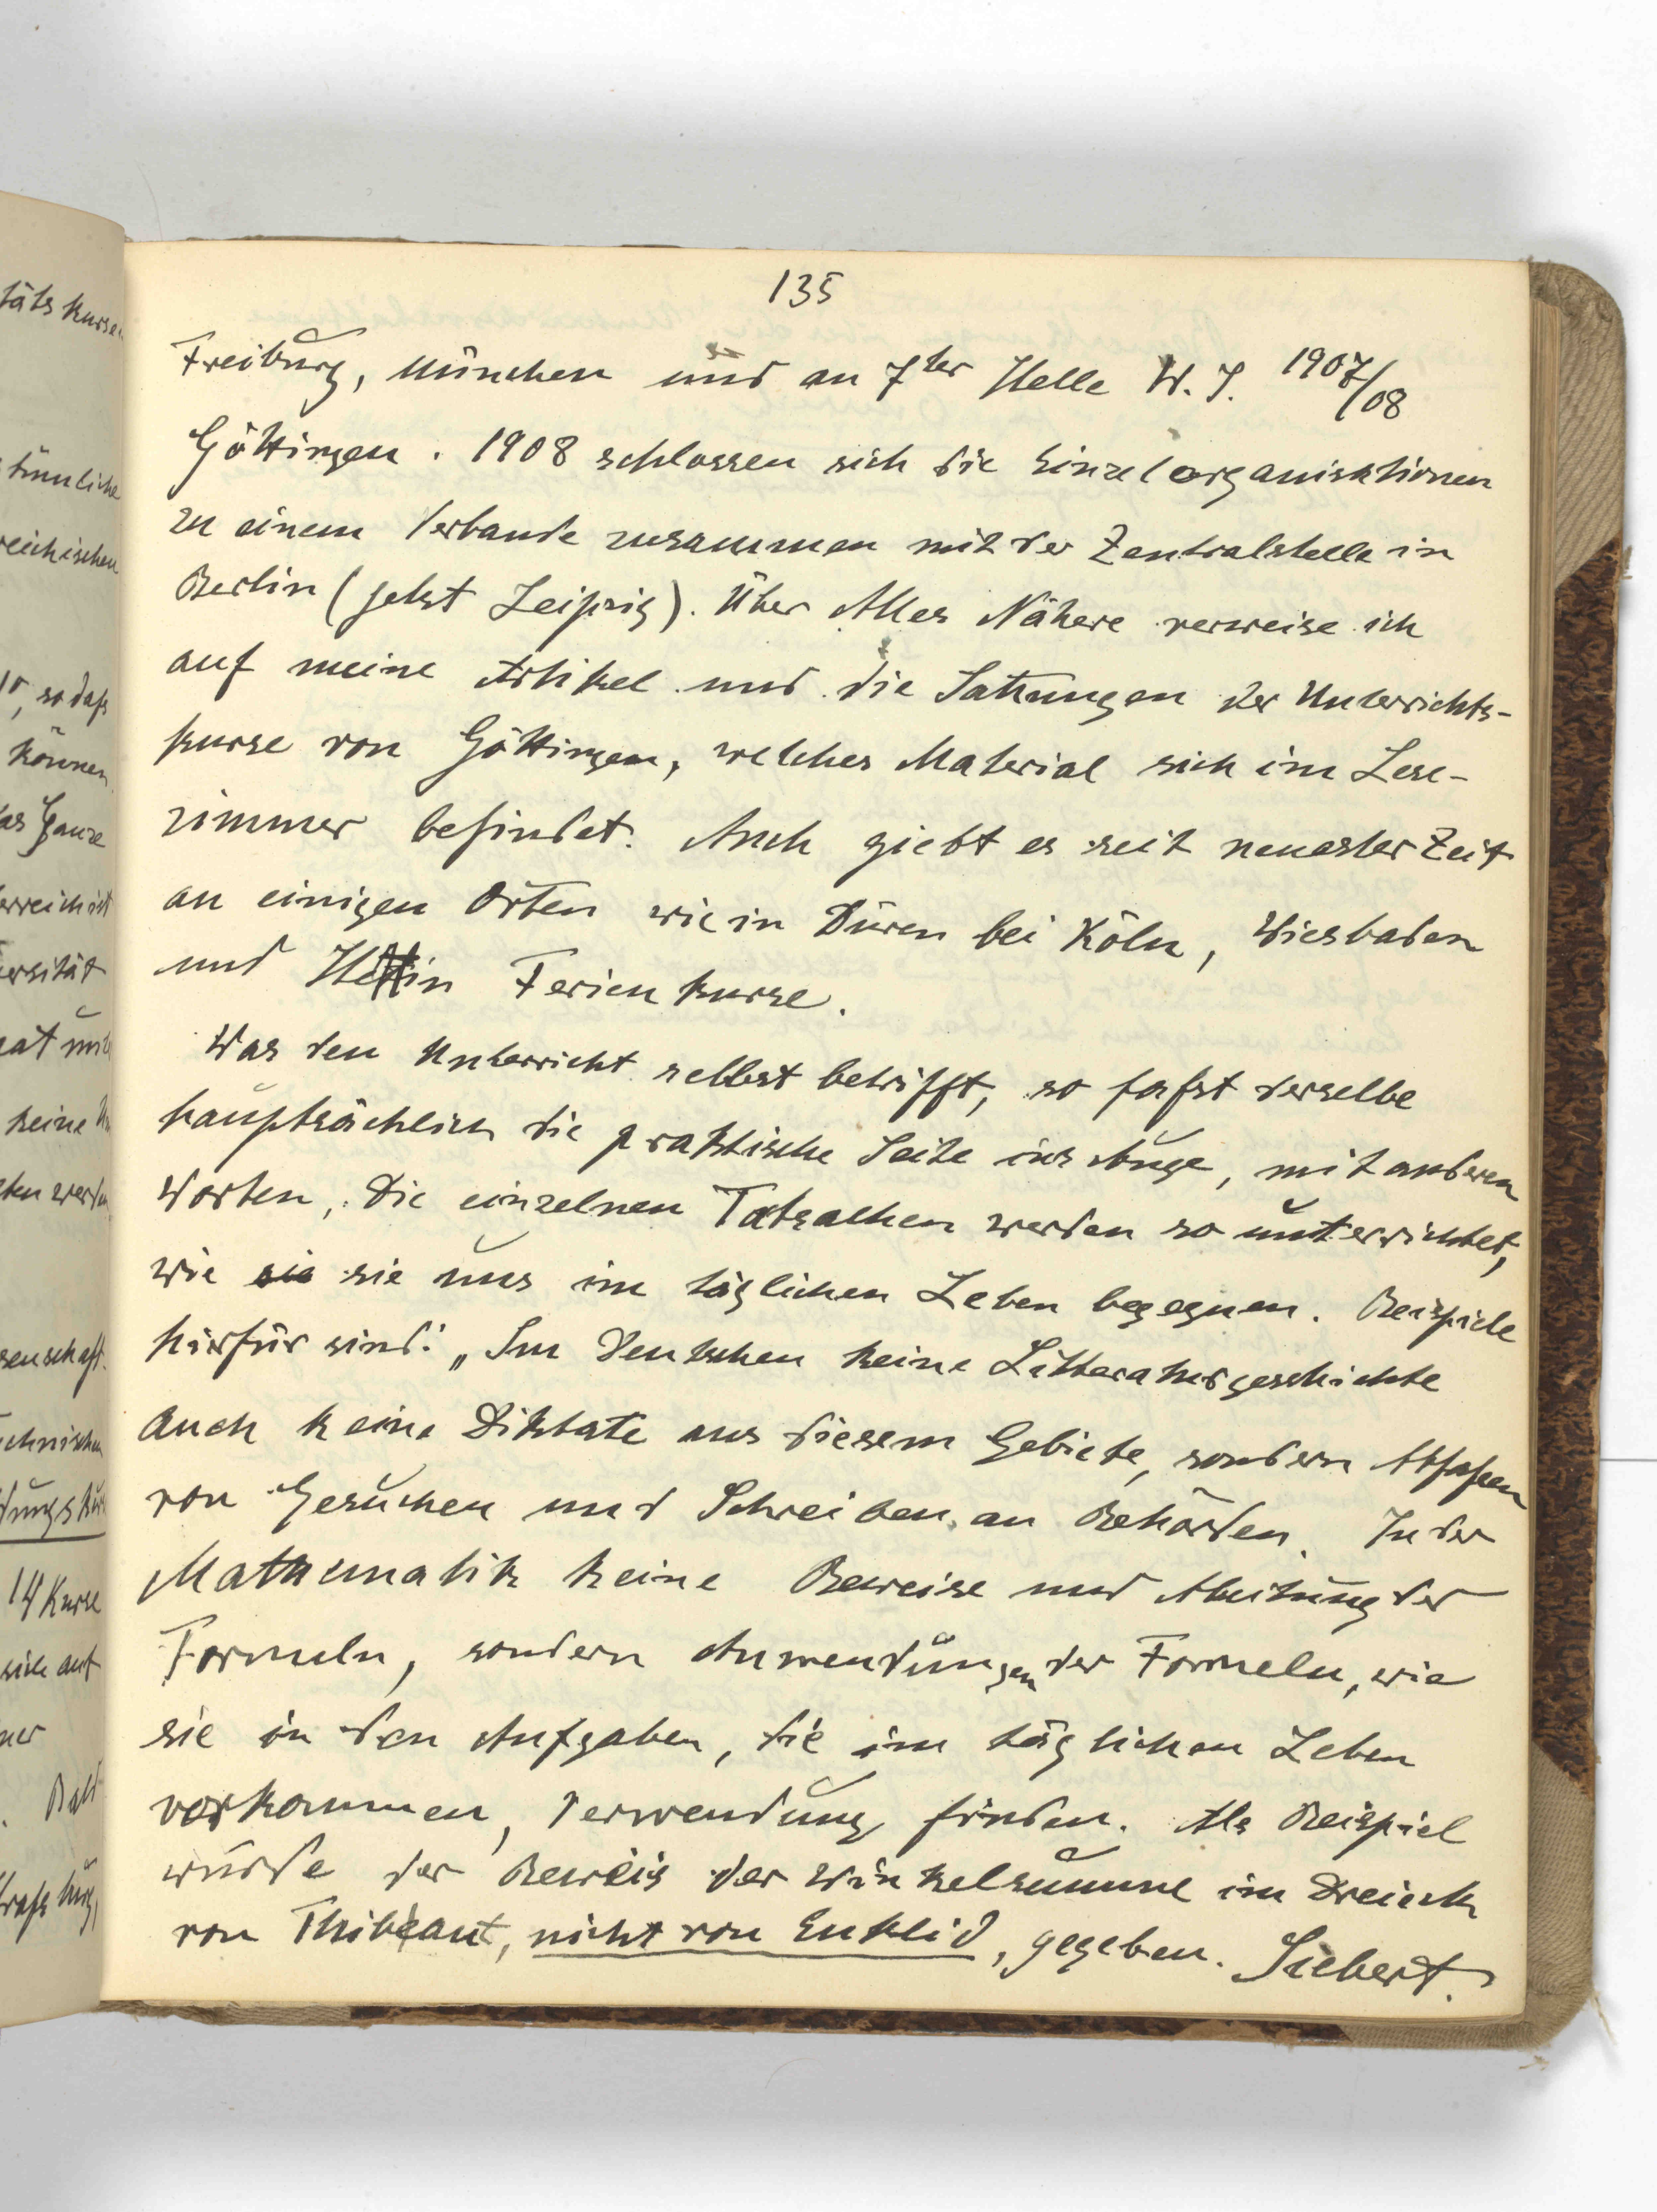 135
Freiburg, München und an 7ter Stelle W. S. 1907/08
Göttingen. 1908 schlossen sich die Einzelorganisationen
zu einem Verbande zusammen mit der Zentralstelle in
Berlin (jetzt Leipzig). Über Alles Nähere verweise ich
auf meine Artikel und die Satzungen der Unterrichts-
kurse von Göttingen, welches Material sich im Lese-
zimmer befindet. Auch giebt es seit neuester Zeit
an einigen Orten wie in Düren bei Köln, Wiesbaden
und Stettin Ferienkurse.
Was den Unterricht selbst betrifft, so faßt derselbe
hauptsächlich die praktische Seite ins Auge, mit anderen
Worten, die einzelnen Tatsachen werden so unterrichtet,
wie sie sie uns im täglichen Leben begegnen. Beispiele
hierfür sind: „Im Deutschen keine Litteraturgeschichte
auch keine Diktate aus diesem Gebiete, sondern Abfaßen
von Gesuchen und Schreiben an Behörden. In der
Mathematik keine Beweise und Ableitung der
Formeln, sondern Anwendungen der Formeln, wie
sie in den Aufgaben, die im täglichen Leben
vorkommen, Verwendung finden. Als Beispiel
würde der Beweis der Winkelsumme im Dreieck
von Thibaut, nicht von Euklid, gegeben. Siebert.
täts kurse
tümliche
reichischen
so daß
können
as Ganze
erreicht ist
ersität
keine
ten werden
senschaft.
echnischen
14 Kurse
sich auf
ner
Bald